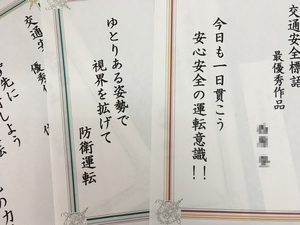 交通安全標語
最優秀作品
今日も一日貫こう
安心安全の運転意識!!
ゆとりある姿勢で
視界を拡げて
防衛運転
交通安
優秀作